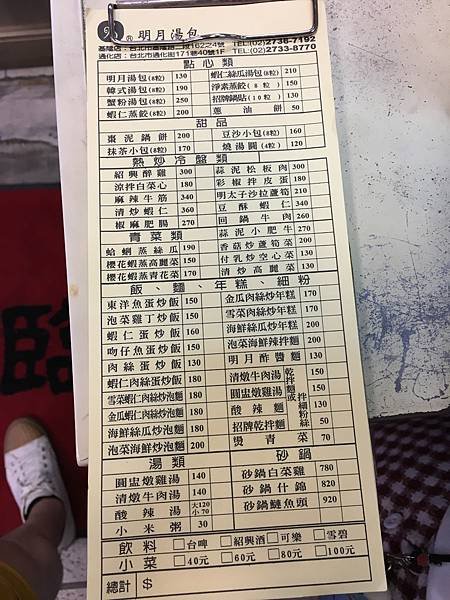 明月湯包
基隆店：台北市基隆路二段162-24號 TEL:(02)2736-7192
通化店：台北市通化街171巷40號1F TEL:(02)2733-8770
點心類
明月湯包(8粒) 130 蝦仁絲瓜湯包(8粒) 210
韓式湯包(8粒) 190 淨素蒸餃(8粒) 150
蟹粉湯包(8粒) 250 招牌鍋貼(10粒) 130
蝦仁蒸餃(8粒) 200 蔥油餅 50
甜品
棗泥鍋餅 200 豆沙小包(8粒) 160
抹茶小包(8粒) 190 燒湯圓(4粒) 120
熱炒冷盤類
紹興醉雞 300 蒜泥松板肉 300
涼拌白菜心 180 彩椒拌皮蛋 180
麻辣牛筋 340 明太子沙拉蘆筍 210
清炒蝦仁 360 豆酥蝦仁 340
椒麻肥腸 270 回鍋牛肉 260
青菜類 蒜泥小肥牛 270
蛤蜊蒸絲瓜 190 香菇炒蘆筍菜 200
櫻花蝦蒸高麗菜 150 付乳炒空心菜 130
櫻花蝦蒸青花菜 170 清炒高麗菜 130
飯、麵、年糕、細粉
東洋魚蛋炒飯 150 金瓜肉絲炒年糕 170
泡菜雞丁炒飯 150 雪菜肉絲炒年糕 170
蝦仁蛋炒飯 160 海鮮絲瓜炒年糕 200
吻仔魚蛋炒飯 150 泡菜海鮮辣拌麵 200
肉絲蛋炒飯 130 明月酢醬麵 130
蝦仁肉絲蛋炒飯 180 清燉牛肉湯 乾拌麵或拌細粉絲 150
雪菜蝦仁肉絲炒泡麵 180 圓盅燉雞湯 150
金瓜蝦仁肉絲炒泡麵 180 酸辣麵 130
海鮮絲瓜炒泡麵 180 招牌乾拌麵 50
泡菜海鮮炒泡麵 200 燙青菜 70
湯類 砂鍋
圓盅燉雞湯 140 砂鍋白菜雞 780
清燉牛肉湯 140 砂鍋什錦 820
酸辣湯 大120 小70 砂鍋鰱魚頭 920
小米粥 30
飲料 □台啤 □紹興酒 □可樂 □雪碧
小菜 □40元 □60元 □80元 □100元
總計 $
臨